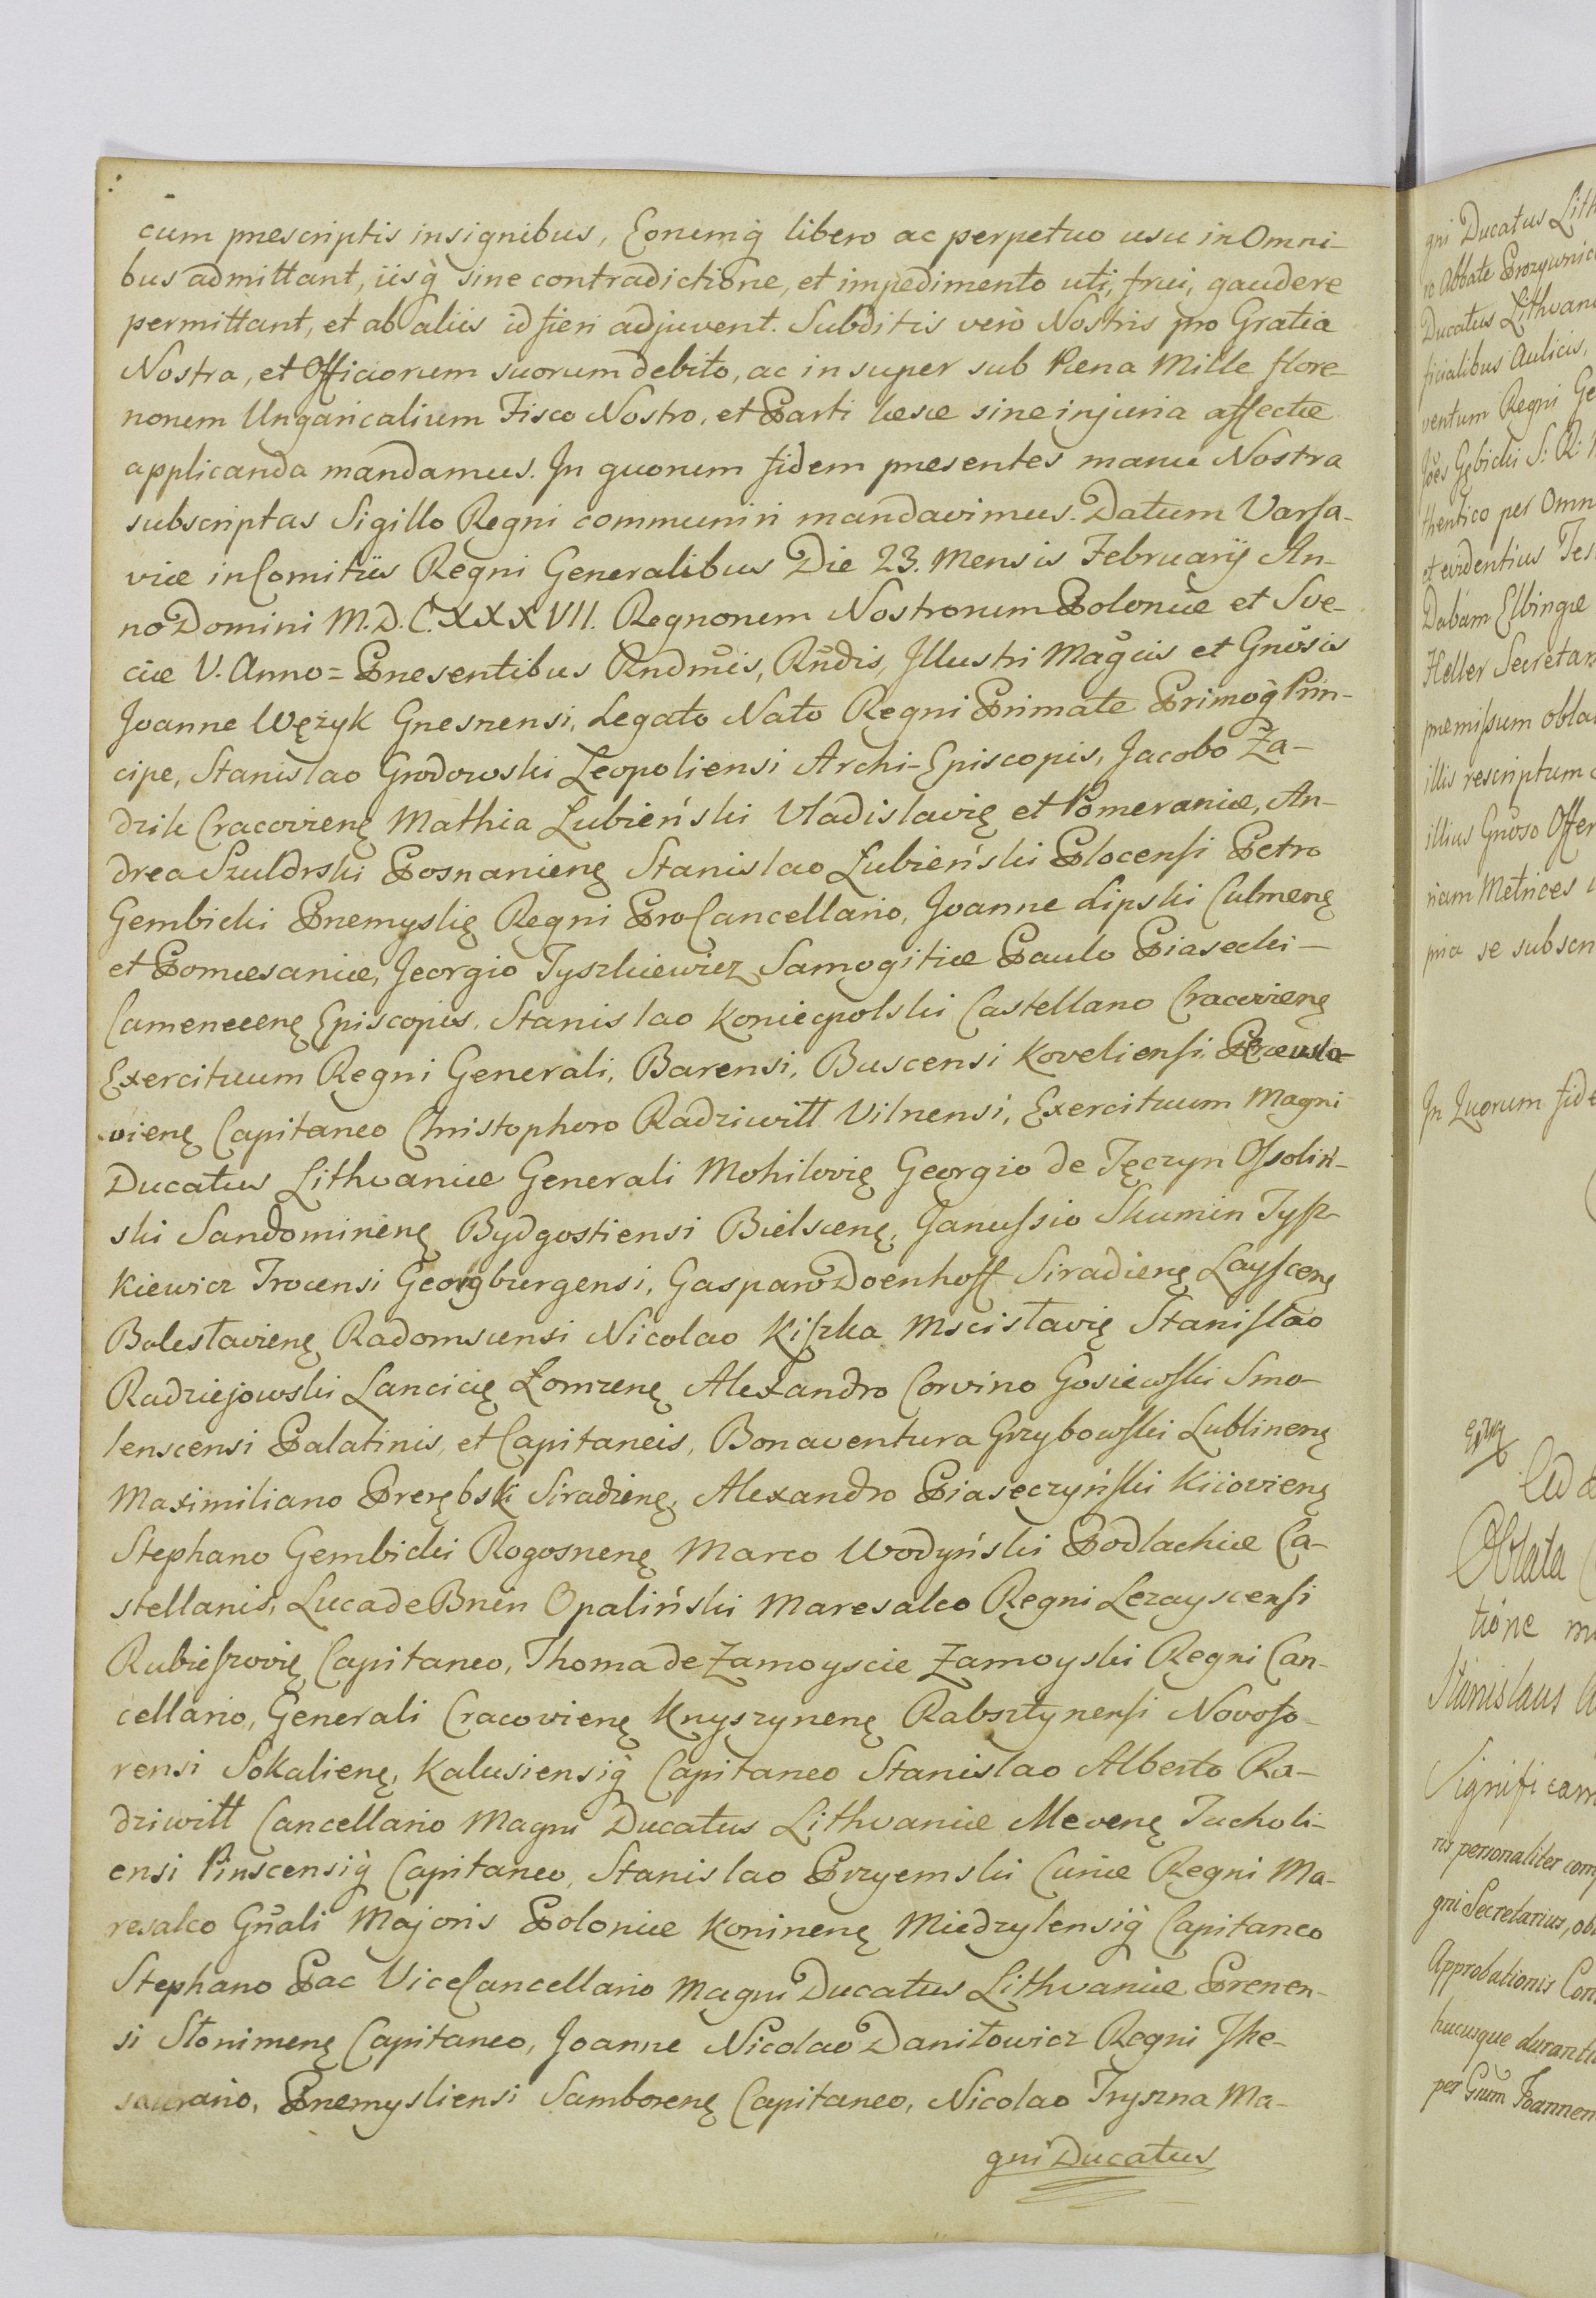 cum præscriptis insignibus, Eorumq̀ libero ac perpetuo usu in Omni-
bus admittant, iisq̀ sine contradictione, et impedimento uti, frui, gaudere
permittant, et ab aliis id fieri adjuvent. Subditis verò Nostris pro Gratia
Nostra, et Officiorum suorum debito, ac in super sub Pœna Mille flore-
norum Ungaricalium Fisco Nostro, et Parti læsæ sine injuria affectæ
applicanda mandamus. In quorum fidem præsentes manu Nostra
subscriptas Sigillo Regni communiri mandavimus. Datum Varsa-
viæ in Comitiis Regni Generalibus Die 23. Mensis Februarij An-
no Domini M.D.C.XXXVII. Regnorum Nostrorum Poloniæ et Sve-
ciæ V. Anno = Præsentibus Rndmis, Rndis, Illustri Magcis et Gnosis
Joanne Wężyk Gnesnensi, Legato Nato Regni Primate Primoq̀ Prin-
cipe, Stanislao Grodowski Leopoliensi Archi-Episcopis, Jacobo Za-
dzik Cracovienę Mathia Łubieński Vladislavię et Pomeraniæ, An-
drea Szuldrski Posnanienę Stanislao Łubieński Plocensi Petro
Gembicki Præmyslię Regni ProCancellario, Joanne Lipski Culmenę
et Pomesaniæ, Georgio Tyszkiewicz Samogitiæ Paulo Piasecki —
Camenecenę Episcopis, Stanislao Koniecpolski Castellano Cracovienę
Exercituum Regni Generali, Barensi, Buscensi Koveliensi, Pereasla-
vienę Capitaneo Christophoro Radziwiłł Vilnensi, Exercituum Magni
Ducatus Lithvaniæ Generali Mohilovię Georgio de Tęczyn Ossoliń-
ski Sandomirienę Bydgostiensi Bielscenę, Janussio Skumin Tysz-
kiewicz Trocensi Georgburgensi, Gasparo Doenhoff Siradienę Laysscenę
Bolesłavienę Radomscensi Nicolao Kiszka Mscisłavię Stanisłao
Radziejowski Lancicię Łomzenę Alexandro Corvino Gosiewski Smo-
lenscensi Palatinis, et Capitaneis, Bonaventura Grzybowski Lublinenę
Maximiliano Przerębski Siradienę, Alexandro Piaseczyński Kiiovienę
Stephano Gembicki Rogosnenę Marco Wodyński Podlachiæ Ca-
stellanis, Luca de Bnin Opaliński Maresalco Regni Lezayscensi
Rubieszovię Capitaneo, Thoma de Zamoyscie Zamoyski Regni Can-
cellario, Generali Cracovienę Knyszynenę Rabsztynensi Novoto-
rensi Sokalienę, Kalusiensiq̀ Capitaneo Stanislao Alberto Ra-
dziwiłł Cancellario Magni Ducatus Lithvaniæ Mevenę Tucholi-
ensi Pinscensiq̀ Capitaneo, Stanislao Przyemski Curiæ Regni Ma-
resalco Gnali Majoris Poloniæ Koninenę Miedzylensiq̀ Capitaneo
Stephano Pac ViceCancellario Magni Ducatus Lithvaniæ Prenen-
si Słonimenę Capitaneo, Joanne Nicolao Daniłowicz Regni The-
saurario, Præmysliensi Samborenę Capitaneo, Nicolao Tryzna Ma-
gni Ducatus
gni Ducatus Lith
ro Abbate
Ducatus Lithvan
ficialibus Aulicis,
ventum Regni Ge
Joes Gębicki S: R: M
thentico per Omn
et evidentius Tes
Dabam Elbingæ
Heller Secretar
præmissum obla
illis rescriptum
illius Gnoso Offer
riam Metrices
pria se subscri
In Quorum fide
Ad
Oblata
tione
Stanislaus
Significam
ris personaliter com
gni Secretarius, ob
Approbationis Con
hucusque durant
per Joannem